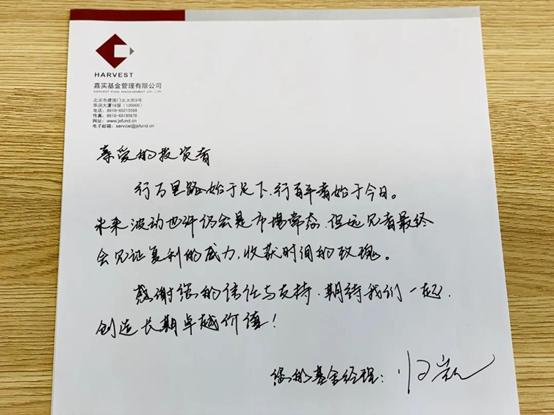 HARVEST
嘉实基金管理有限公司
HARVEST FUND MANAGEMENT CO., LTD.
北京市建国门北大街8号
华润大厦16层 (100005)
电话: 8610-65215588
网址: www.jsfund.cn
电子邮箱: service@jsfund.cn
亲爱的投资者
行万里路始于足下,行百年者始于今日。
未来波动也许仍会是市场常态,但远见者最终
会见证复利的威力,收获时间的玫瑰。
感谢您的信任与支持,期待我们一起,
创造长期卓越价值!
您的基金经理: